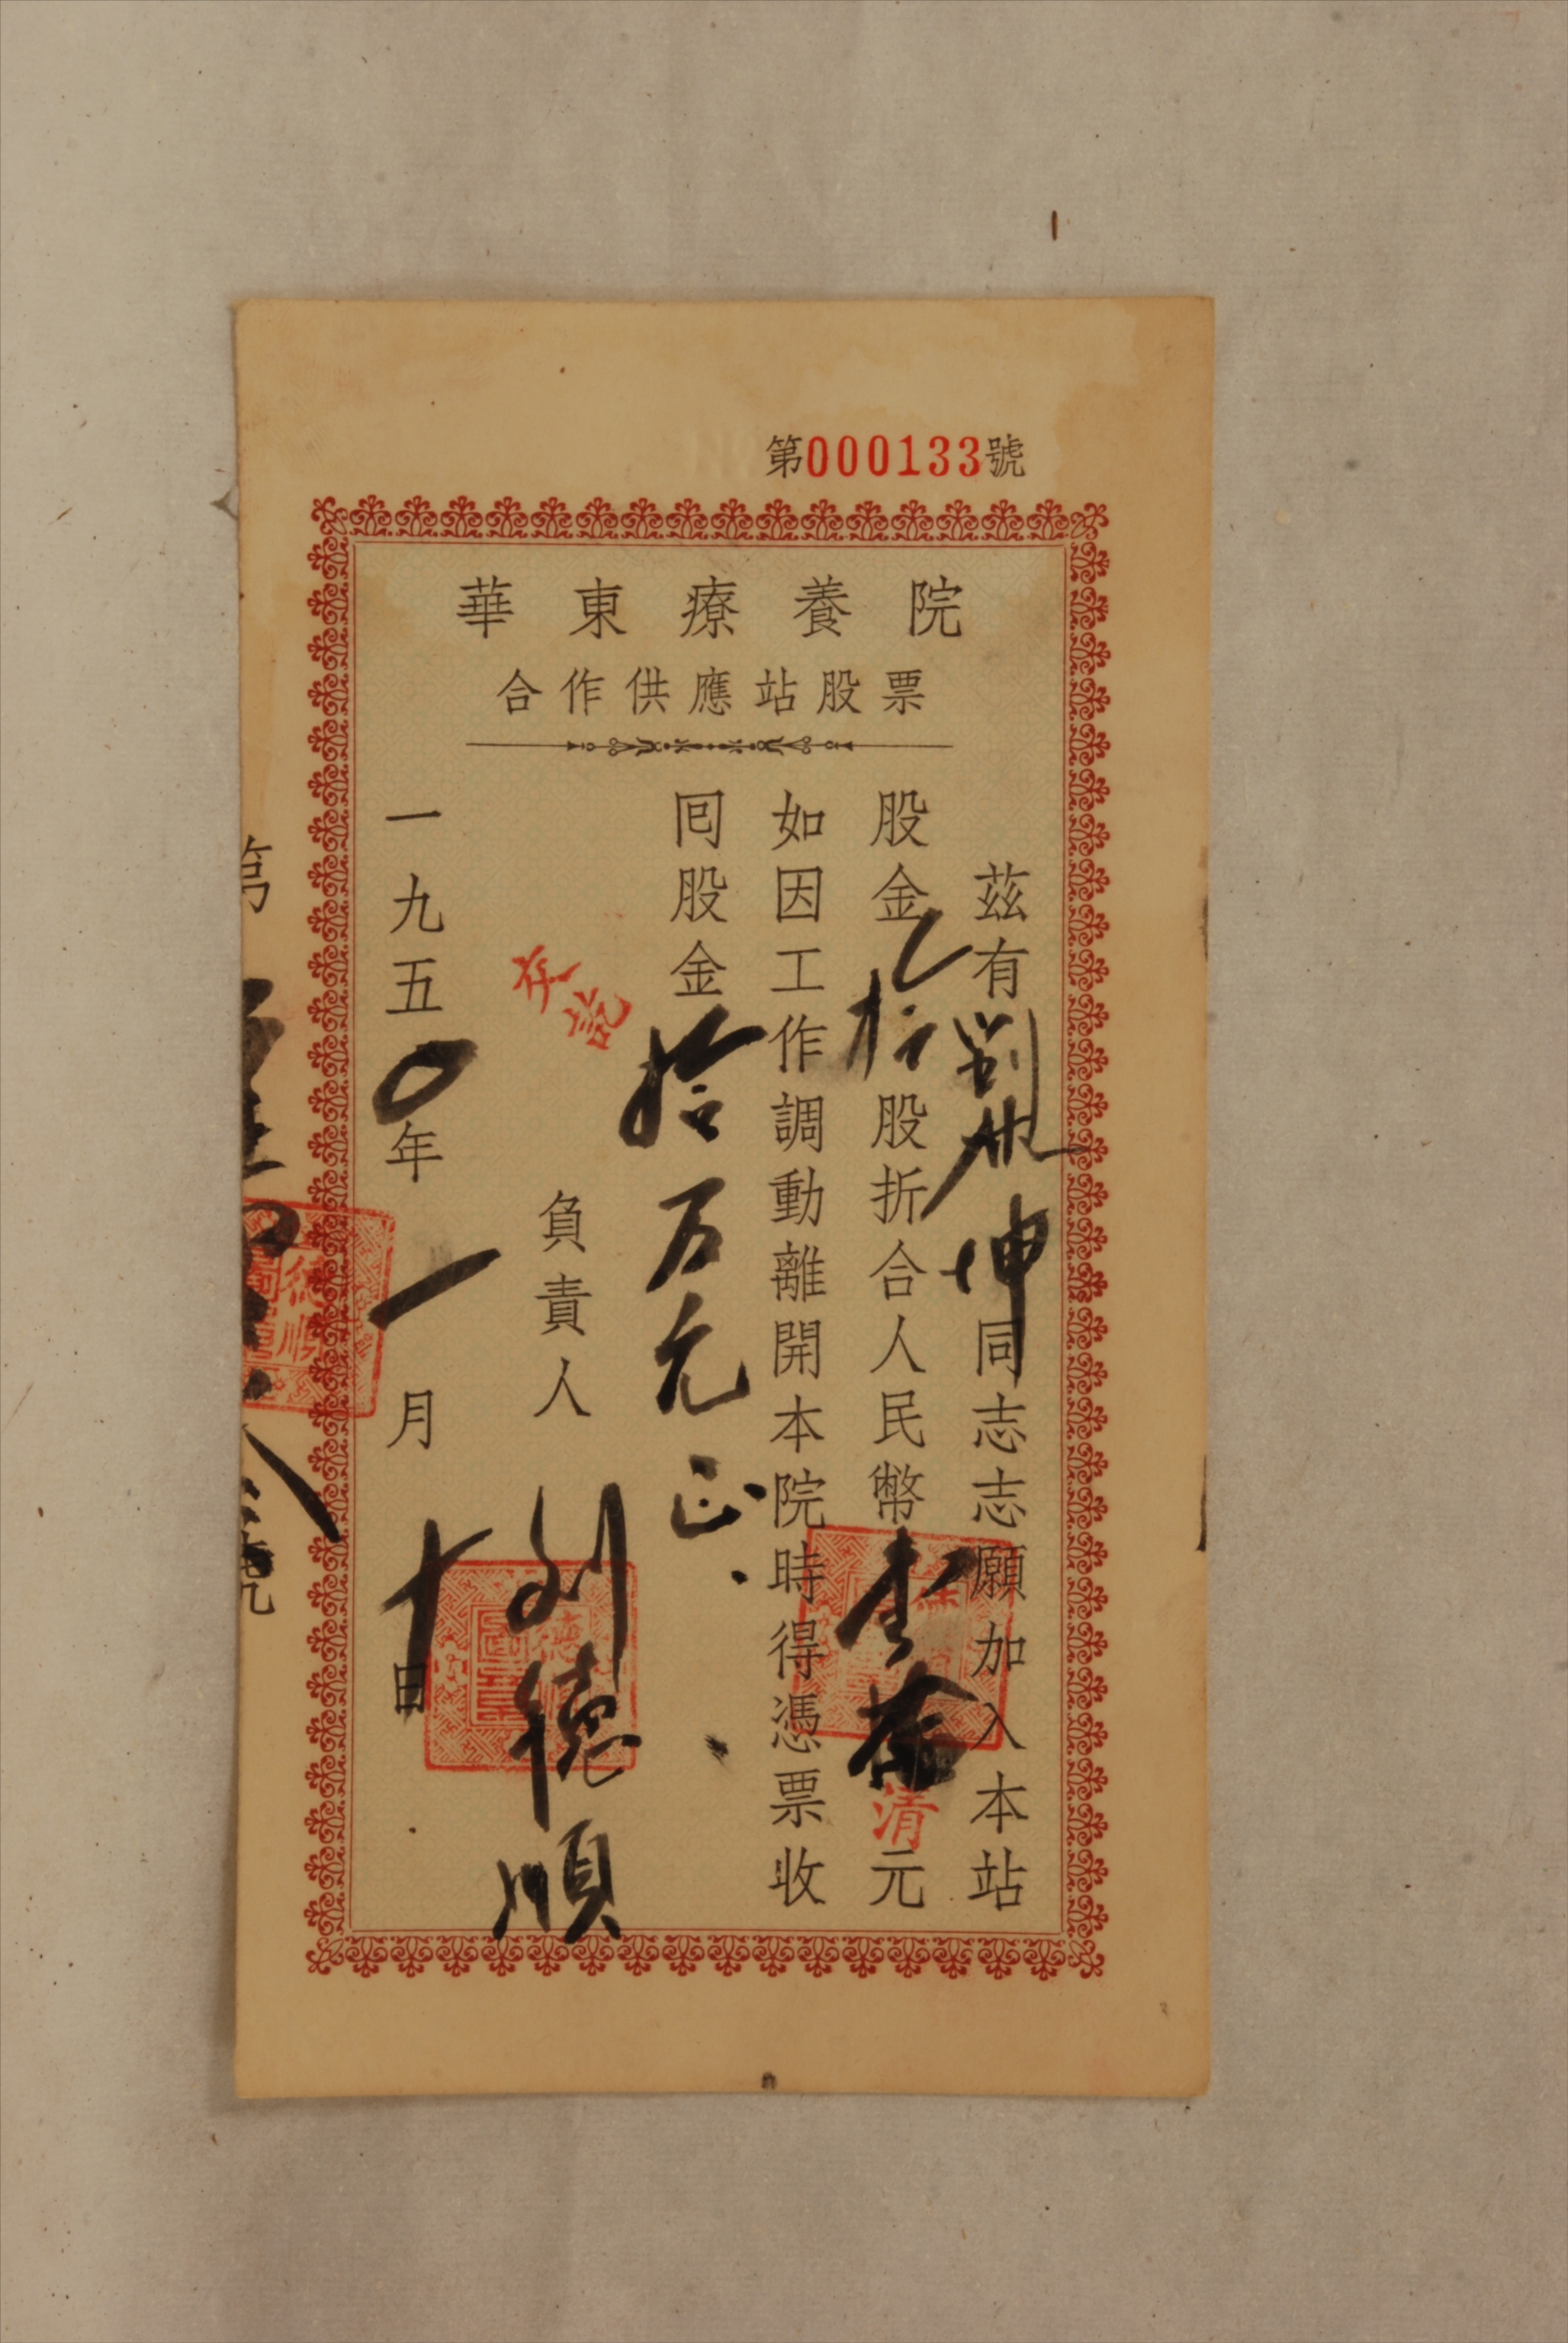 第000133號
華東療養院
合作供應站股票
茲有劉坤同志志願加入本站
股金拾股折合人民幣元
如因工作調動離開本院時得憑票收
囘股金拾万元正
負責人 刘德順
一九五〇年一月十日
第 號